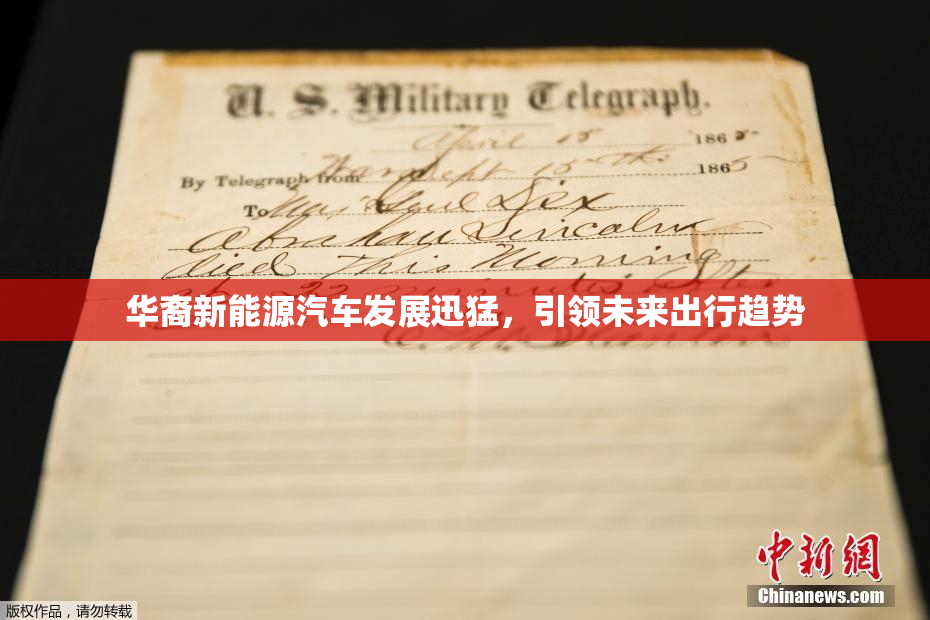 U. S. Military Telegraph.
April 15 1865
By Telegraph from War Dept 15th 1865
To Maj Genl Dix
Abraham Lincoln
died This Morning
at 22 minutes after
华裔新能源汽车发展迅猛，引领未来出行趋势
E. M. Stanton
中新网
Chinanews.com
版权作品，请勿转载